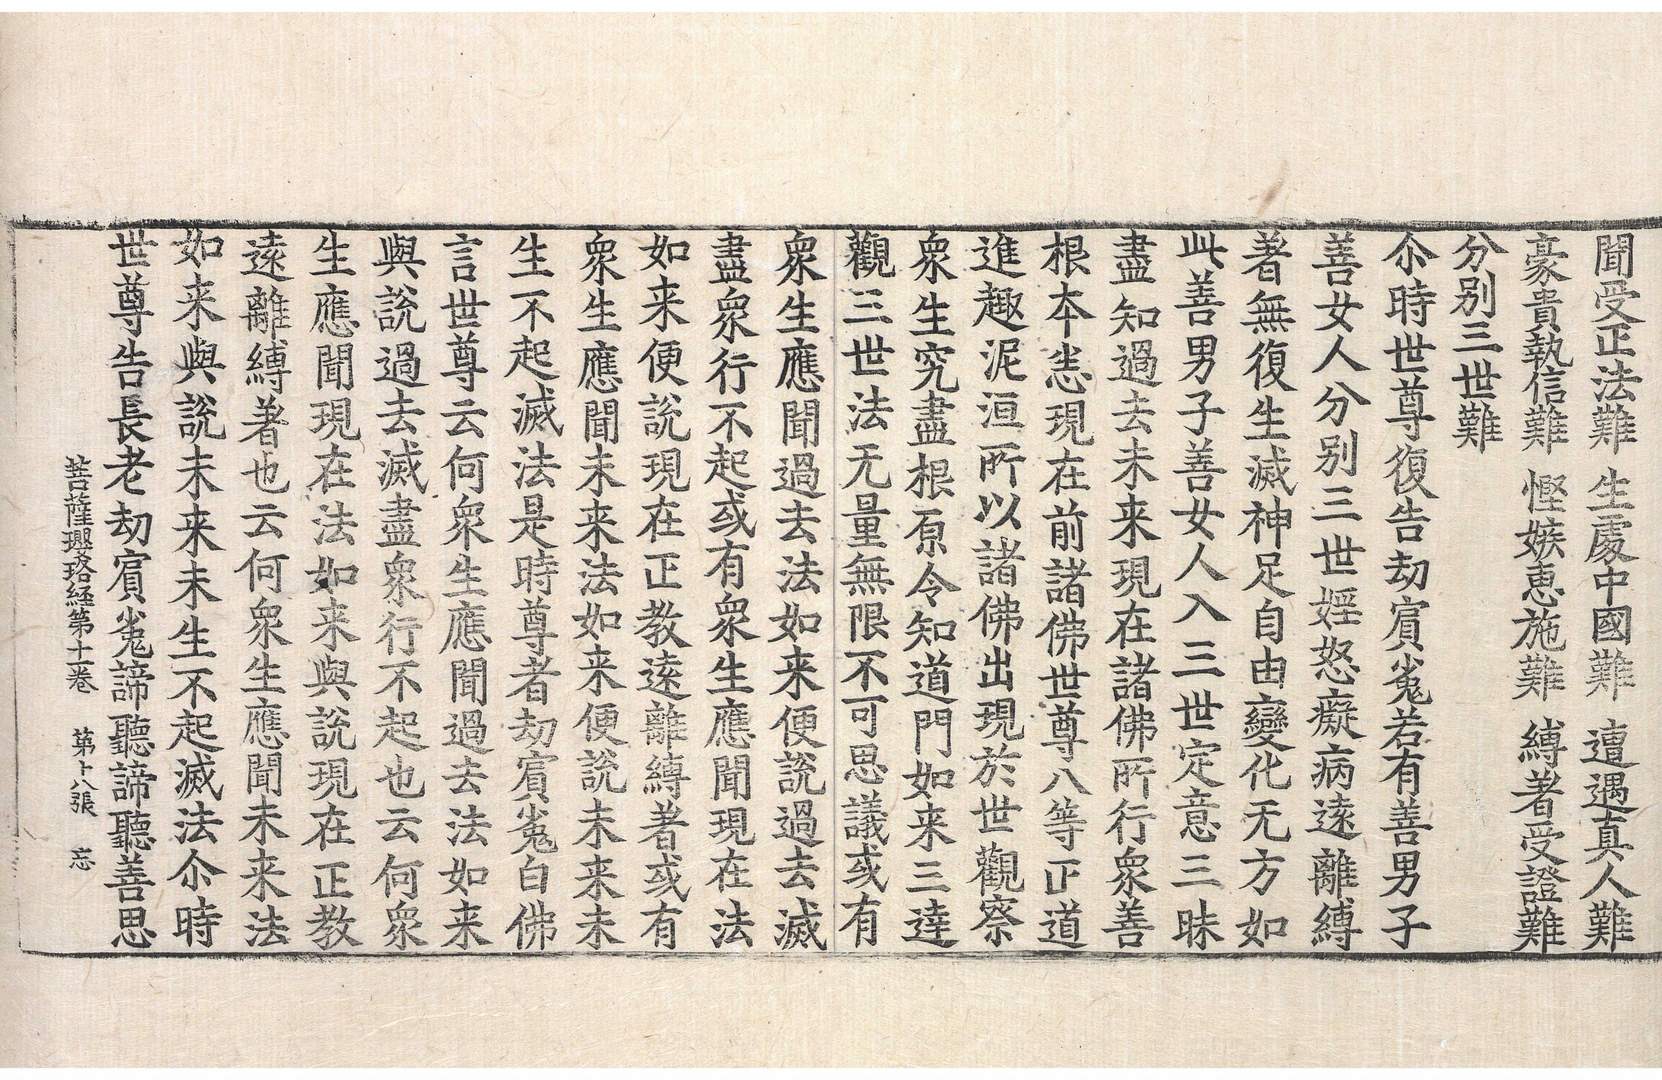 聞受正法難 生處中國難 遭遇真人難
豪貴執信難 慳嫉惠施難 縛著受證難
分别三世難
尒時世尊復告劫賔㝹若有善男子
善女人分别三世婬怒癡病遠離縛
著無復生滅神足自由變化无方如
此善男子善女人入三世定意三昧
盡知過去未来現在諸佛所行衆善
根本悉現在前諸佛世尊八等正道
進趣泥洹所以諸佛出現於世觀察
衆生究盡根原令知道門如来三達
觀三世法无量無限不可思議或有
衆生應聞過去法如来便說過去滅
盡衆行不起或有衆生應聞現在法
如来便說現在正教遠離縛著或有
衆生應聞未来法如来便說未来未
生不起滅法是時尊者劫賔㝹白佛
言世尊云何衆生應聞過去法如来
與說過去滅盡衆行不起也云何衆
生應聞現在法如来與說現在正教
遠離縛著也云何衆生應聞未来法
如来與說未来未生不起滅法尒時
世尊告長老劫賔㝹諦聽諦聽善思
菩薩瓔珞経第十一卷 第十八張 忘